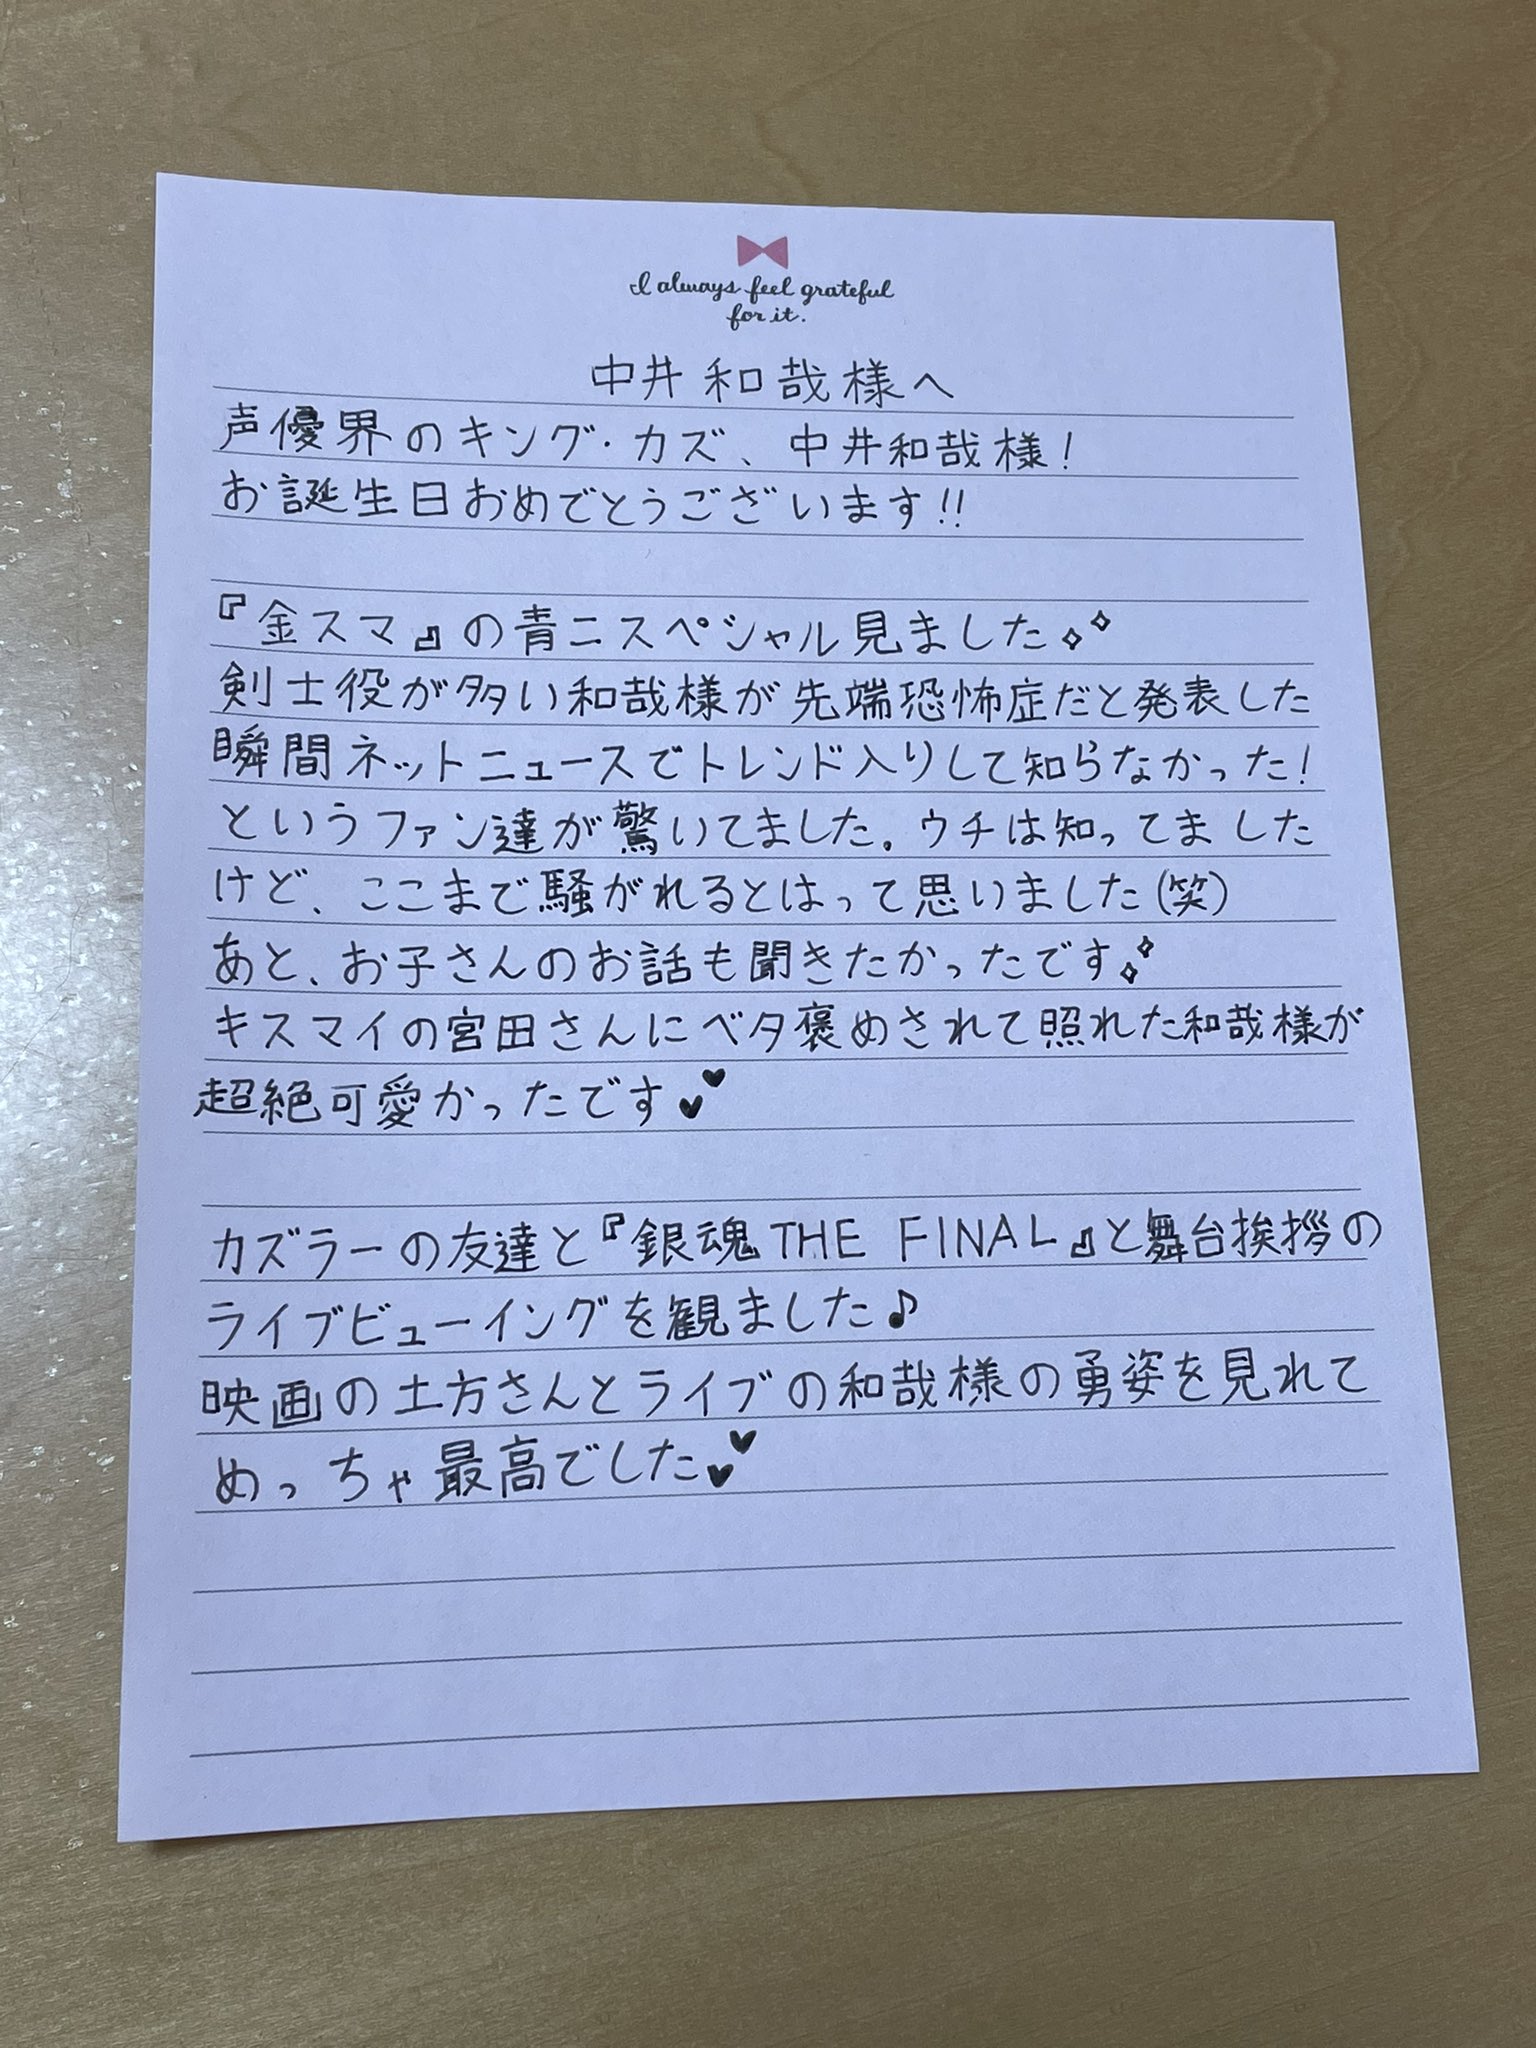 I always feel grateful
for it.
中井和哉様へ
声優界のキング・カズ、中井和哉様!
お誕生日おめでとうございます!!
『金スマ』の青二スペシャル見ました✧✧
剣士役が多い和哉様が先端恐怖症だと発表した
瞬間ネットニュースでトレンド入りして知らなかった!
というファン達が驚いてました。ウチは知ってました
けど、ここまで騒がれるとはって思いました(笑)
あと、お子さんのお話も聞きたかったです✧✧
キスマイの宮田さんにベタ褒めされて照れた和哉様が
超絶可愛かったです♥♥
カズラーの友達と『銀魂THE FINAL』と舞台挨拶の
ライブビューイングを観ました♪
映画の土方さんとライブの和哉様の勇姿を見れて
めっちゃ最高でした♥♥